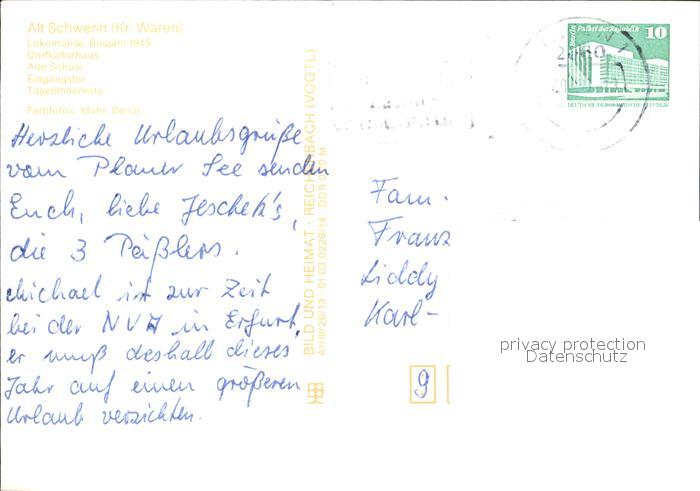 Alt Schwerin (Kr. Waren)
Lokomobile, Baujahr 1915
Dorfkulturhaus
Alte Schule
Eingangstor
Tagelöhnerkate
Farbfotos: Mohr, Berlin
Herzliche Urlaubsgrüße
vom Plauer See senden
Euch, liebe Jeschek's,
die 3 Päßlers.
Michael ist zur Zeit
bei der NVA in Erfurt,
er muß deshalb dieses
Jahr auf einen größeren
Urlaub verzichten.
BILD UND HEIMAT · REICHENBACH (VOGTL)
A1/III/26/13 · 01 03 0226/14 · DDR M
Berlin Palast der Republik
10
DEUTSCHE DEMOKRATISCHE REPUBLIK
Fam.
Franz
Liddy
Karl-
9
privacy protection
Datenschutz